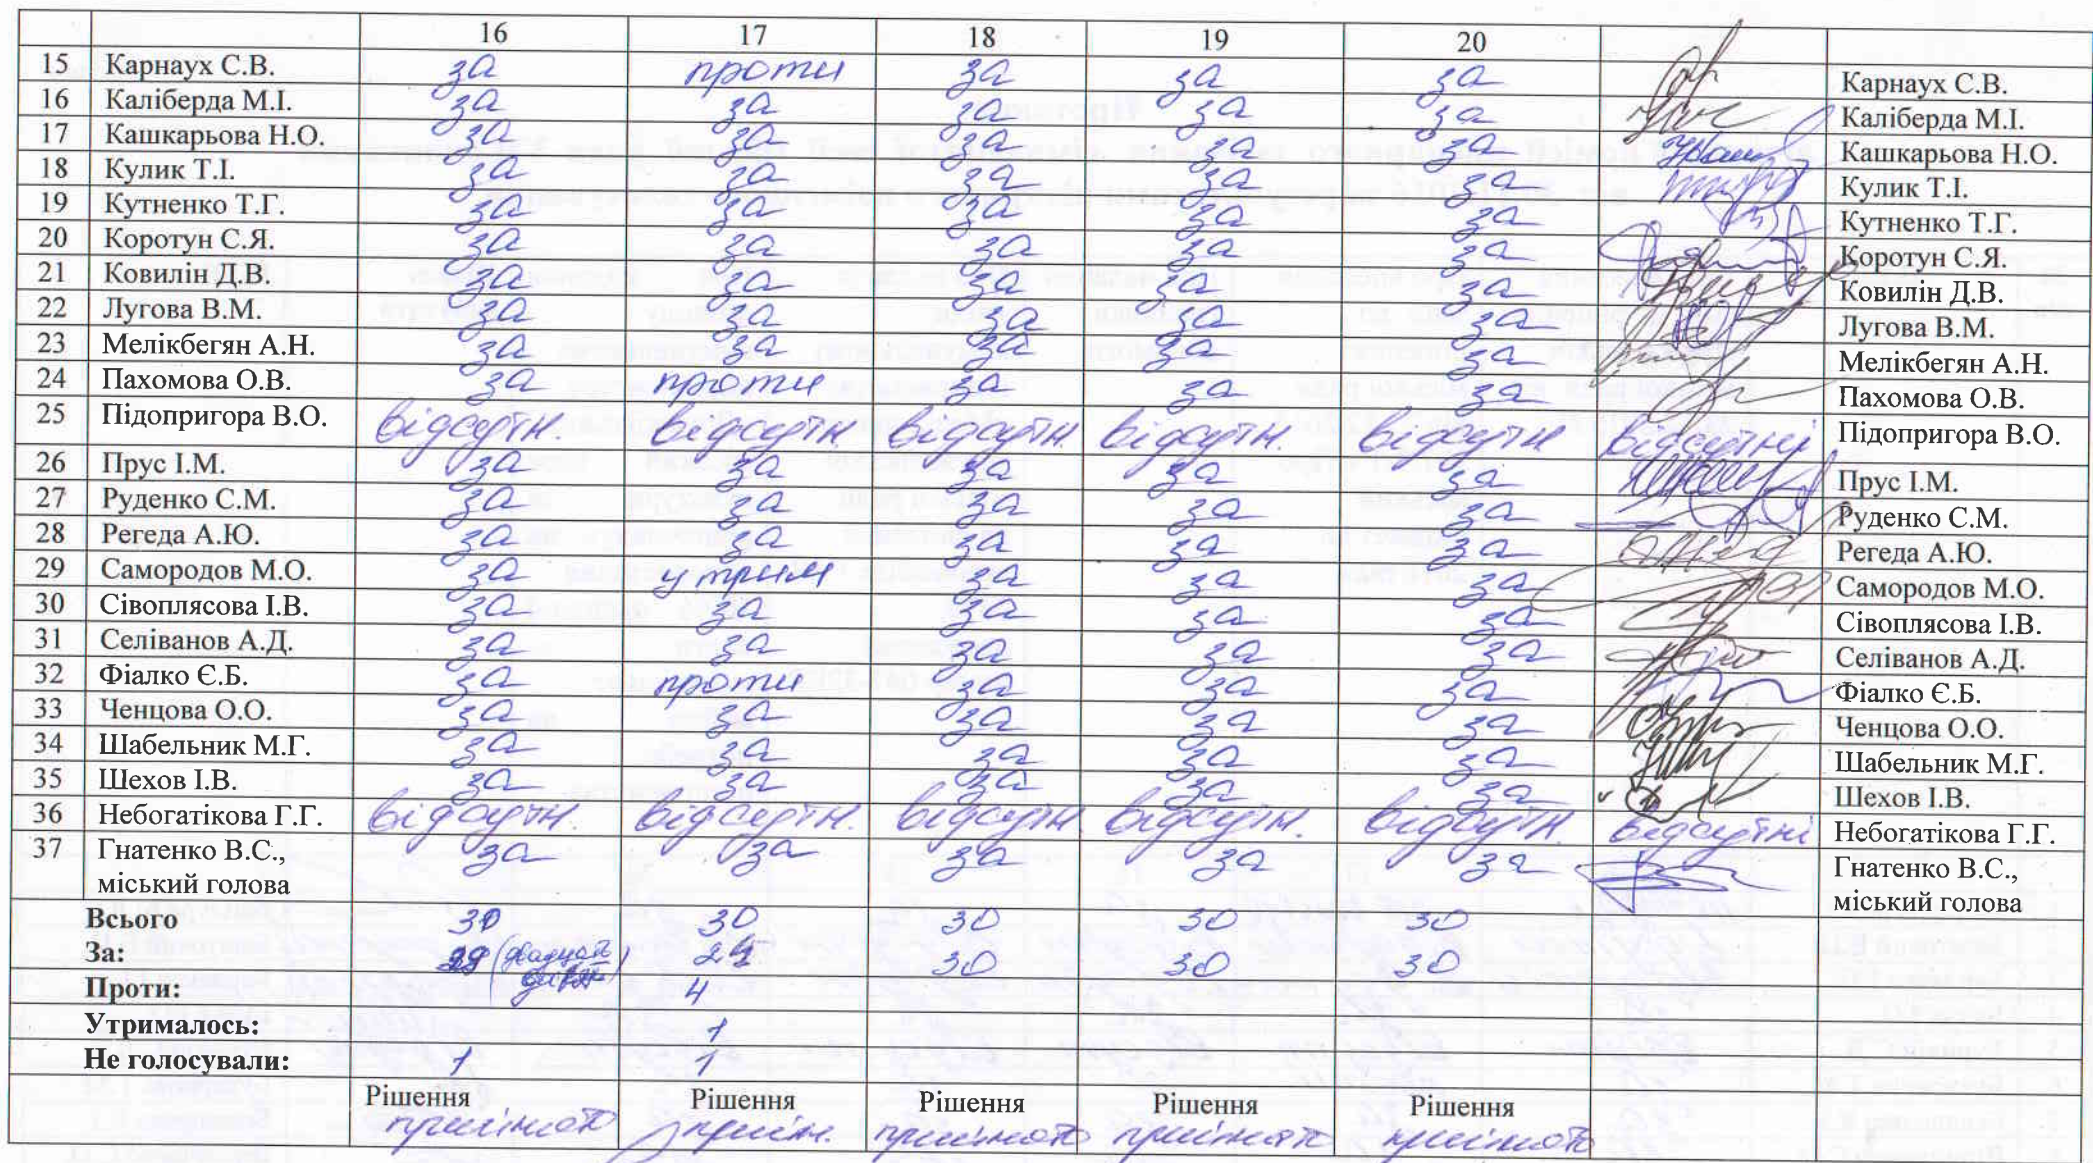 16 17 18 19 20
15 Карнаух С.В. за проти за за за Карнаух С.В.
16 Каліберда М.І. за за за за за Каліберда М.І.
17 Кашкарьова Н.О. за за за за за Кашкарьова Н.О.
18 Кулик Т.І. за за за за за Кулик Т.І.
19 Кутненко Т.Г. за за за за за Кутненко Т.Г.
20 Коротун С.Я. за за за за за Коротун С.Я.
21 Ковилін Д.В. за за за за за Ковилін Д.В.
22 Лугова В.М. за за за за за Лугова В.М.
23 Мелікбегян А.Н. за за за за за Мелікбегян А.Н.
24 Пахомова О.В. за проти за за за Пахомова О.В.
25 Підопригора В.О. відсутн. відсутн відсутн. відсутн. відсутн відсутні Підопригора В.О.
26 Прус І.М. за за за за за Прус І.М.
27 Руденко С.М. за за за за за Руденко С.М.
28 Регеда А.Ю. за за за за за Регеда А.Ю.
29 Самородов М.О. за утрим за за за Самородов М.О.
30 Сівоплясова І.В. за за за за за Сівоплясова І.В.
31 Селіванов А.Д. за за за за за Селіванов А.Д.
32 Фіалко Є.Б. за проти за за за Фіалко Є.Б.
33 Ченцова О.О. за за за за за Ченцова О.О.
34 Шабельник М.Г. за за за за за Шабельник М.Г.
35 Шехов І.В. за за за за за Шехов І.В.
36 Небогатікова Г.Г. відсутн. відсутн. відсутн. відсутн. відсутн. відсутні Небогатікова Г.Г.
37 Гнатенко В.С., за за за за за Гнатенко В.С.,
міський голова міський голова
Всього 30 30 30 30 30
За: 29 24 30 30 30
Проти: 4
Утрималось: 1
Не голосували: 1 1
Рішення Рішення Рішення Рішення Рішення
прийнято прийн. прийнято прийнято прийнято